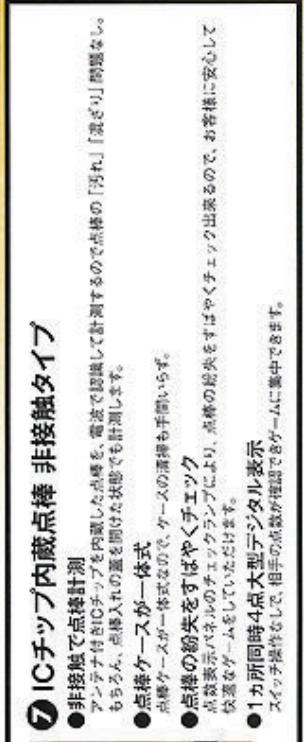 ❼ ICチップ内蔵点棒 非接触タイプ
●非接触で点棒計測
アンテナ付きICチップを内蔵した点棒を、電波で認識して計測するので点棒の「汚れ」「混ざり」問題なし。
もちろん、点棒入れの蓋を開けた状態でも計測します。
●点棒ケースが一体式
点棒ケースが一体式なので、ケースの清掃も手間いらず。
●点棒の紛失をすばやくチェック
点数表示パネルのチェックランプにより、点棒の紛失をすばやくチェック出来るので、お客様に安心して
快適なゲームをしていただけます。
●1ヵ所同時4点大型デジタル表示
スイッチ操作なしで、相手の点数が確認できゲームに集中できます。